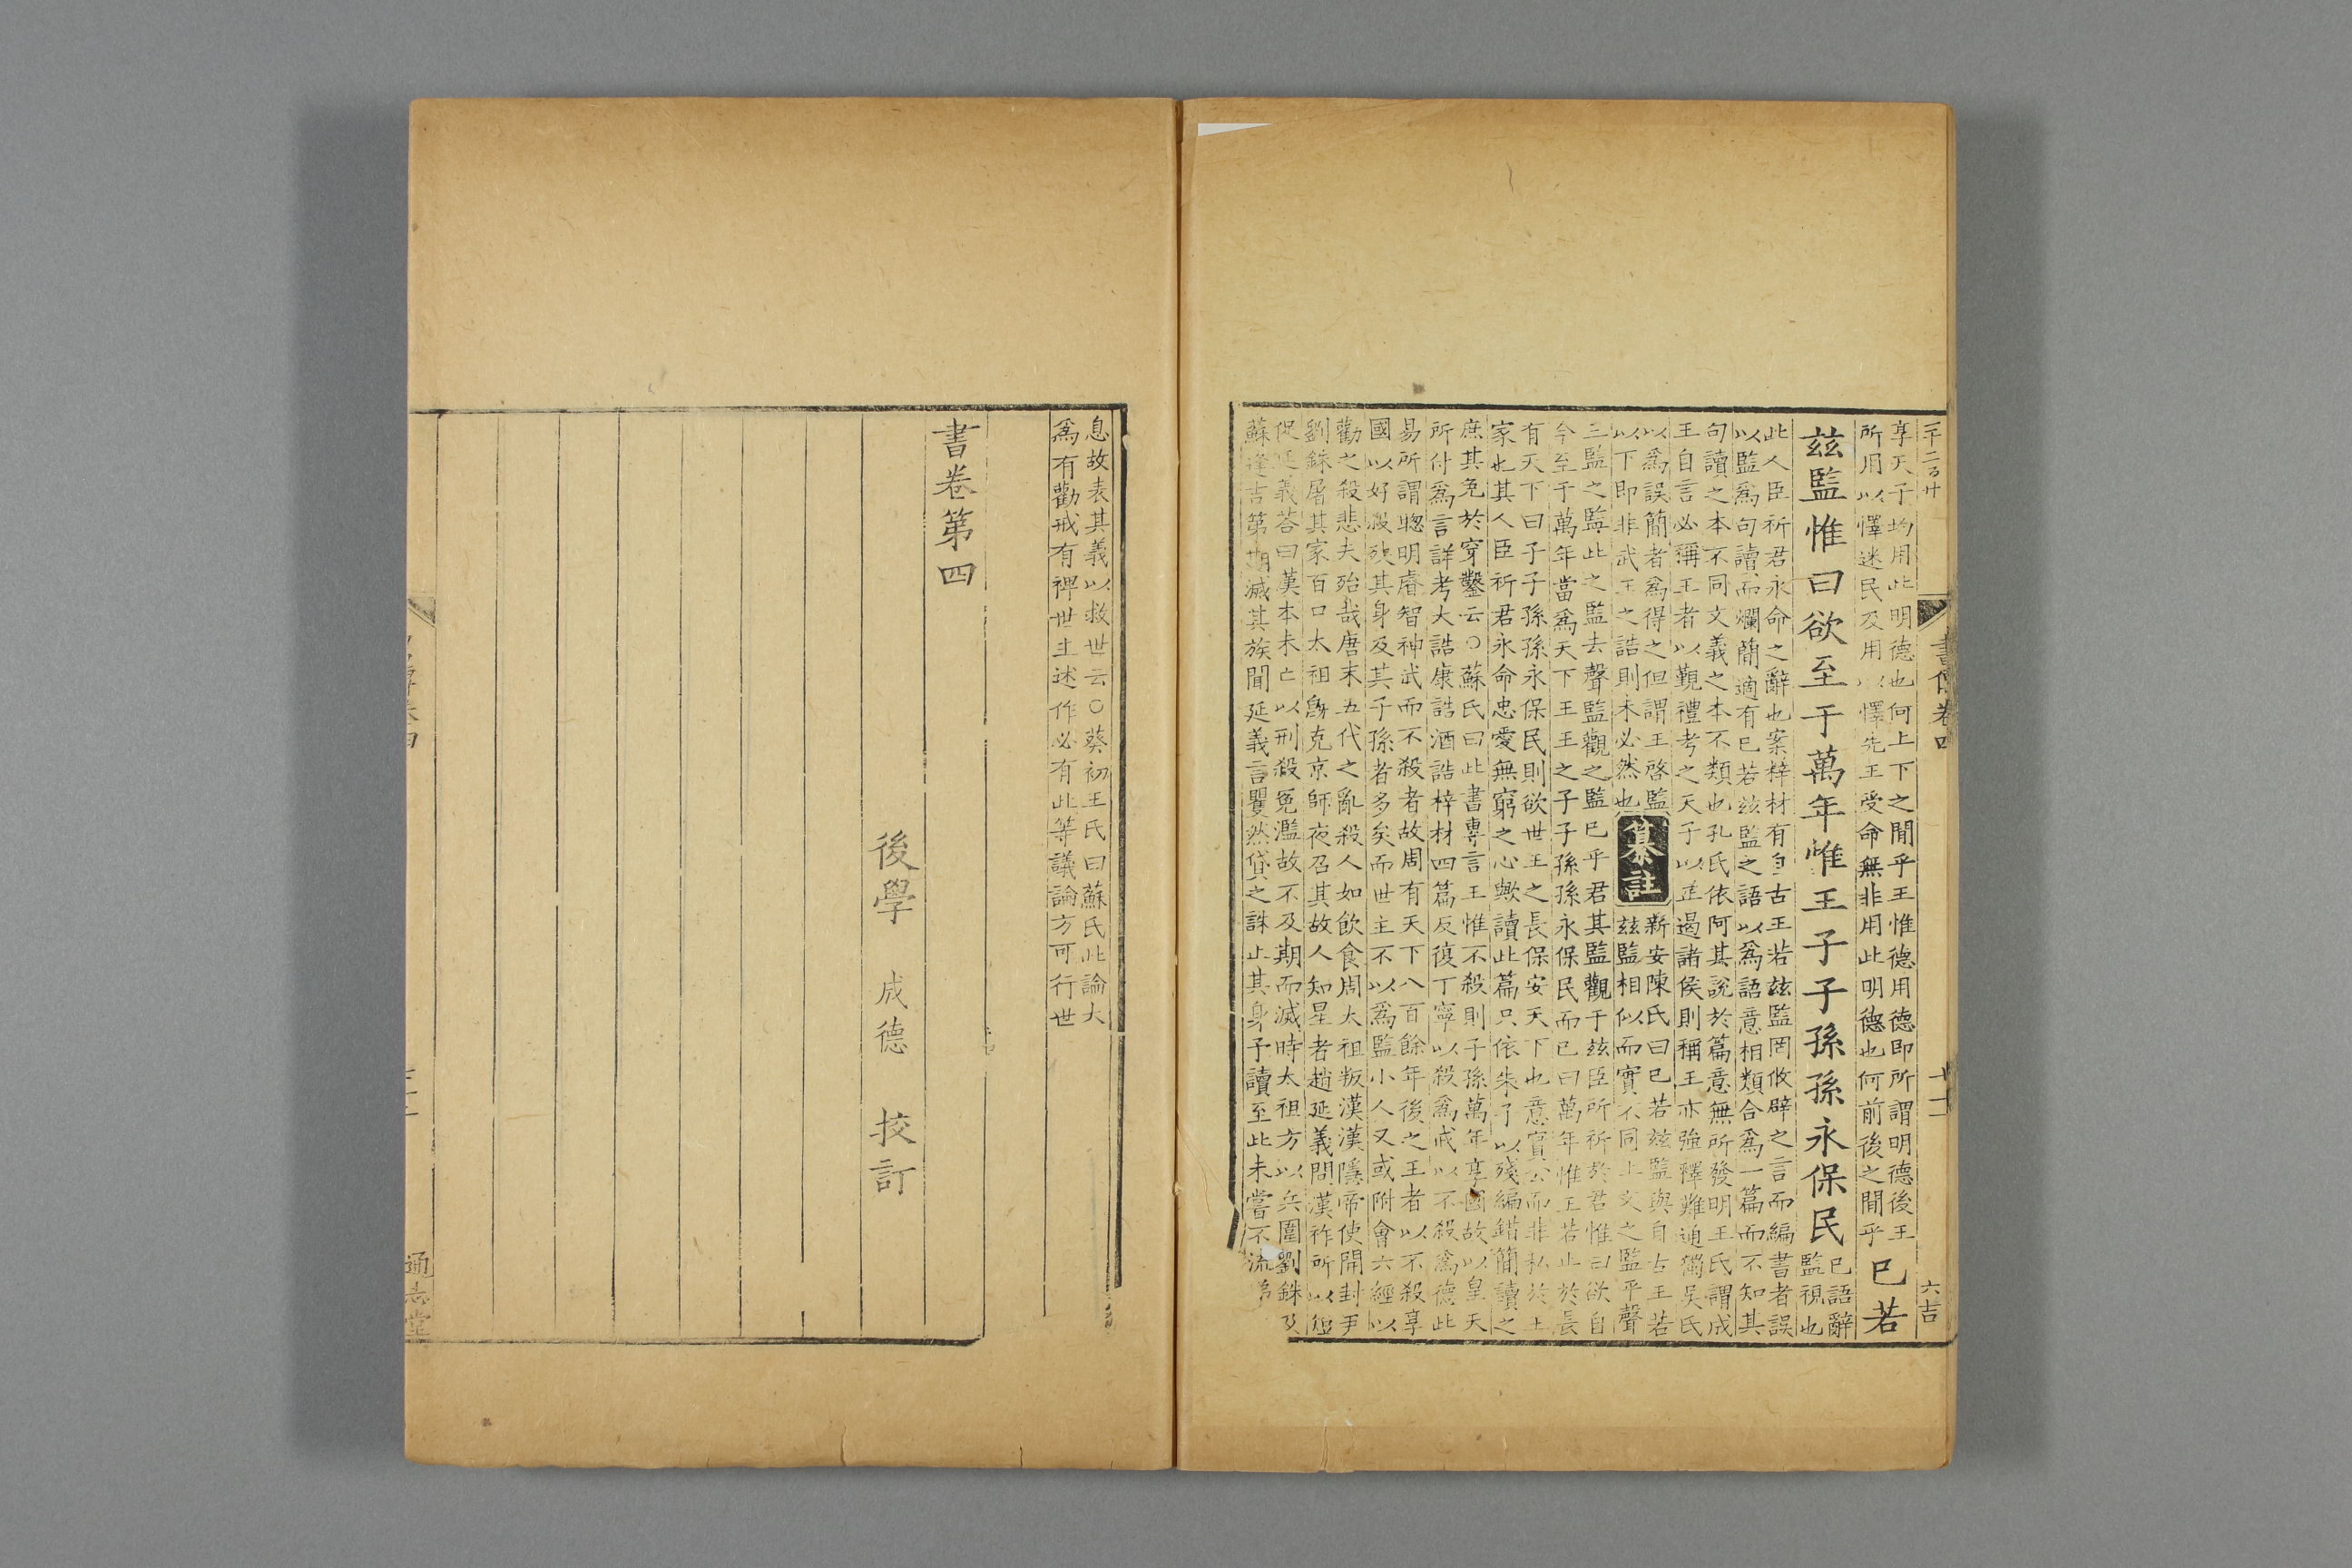 書傳卷四
六吉
享天子均用此明德也何上下之間乎王惟德用德即所謂明德後王
所用以懌迷民及用以懌先王受命無非用此明德也何前後之間乎
已若
茲監惟曰欲至于萬年惟王子子孫孫永保民
已語辭
監視也
此人臣祈君永命之辭也案梓材有自古王若茲監罔攸辟之言而編書者誤
以監爲句讀而爛簡適有已若茲監之語以爲語意相類合爲一篇而不知其
句讀之本不同文義之本不類也孔氏依阿其說於篇意無所發明王氏謂成
王自言必稱王者以覲禮考之天子以正遏諸侯則稱王亦強釋難通獨吳氏
以爲誤簡者爲得之但謂王啓監
以下即非武王之誥則未必然也
纂註
新安陳氏曰已若茲監與自古王若
茲監相似而實不同上文之監平聲
三監之監此之監去聲監觀之監已乎君其監觀于茲臣所祈於君惟曰欲自
今至于萬年當爲天下王王之子子孫孫永保民而已曰萬年惟王若止於長
有天下曰子子孫孫永保民則欲世王之長保安天下也意實公而非私於王
家也其人臣祈君永命忠愛無窮之心歟讀此篇只依朱子以殘編錯簡讀之
庶其免於穿鑿云○蘇氏曰此書專言王惟不殺則子孫萬年享國故以皇天
所付爲言詳考大誥康誥酒誥梓材四篇反復丁寧以殺爲戒以不殺爲德此
易所謂聰明睿智神武而不殺者故周有天下八百餘年後之王者以不殺享
國以好殺殃其身及其子孫者多矣而世主不以爲監小人又或附會六經以
勸之殺悲夫殆哉唐末五代之亂殺人如飲食周太祖叛漢漢隱帝使開封尹
劉銖屠其家百口太祖旣克京師夜召其故人知星者趙延義問漢祚所以短
促延義荅曰漢本未亡以刑殺冤濫故不及期而滅時太祖方以兵圍劉銖及
蘇逢吉第期滅其族聞延義言矍然貸之誅止其身予讀至此未嘗不流涕
息故表其義以救世云○葵初王氏曰蘇氏此論大
爲有勸戒有裨世主述作必有此等議論方可行世
書卷第四
後學 成德 校訂
通志堂